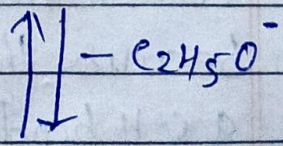 ⇅ - C2H5O⁻